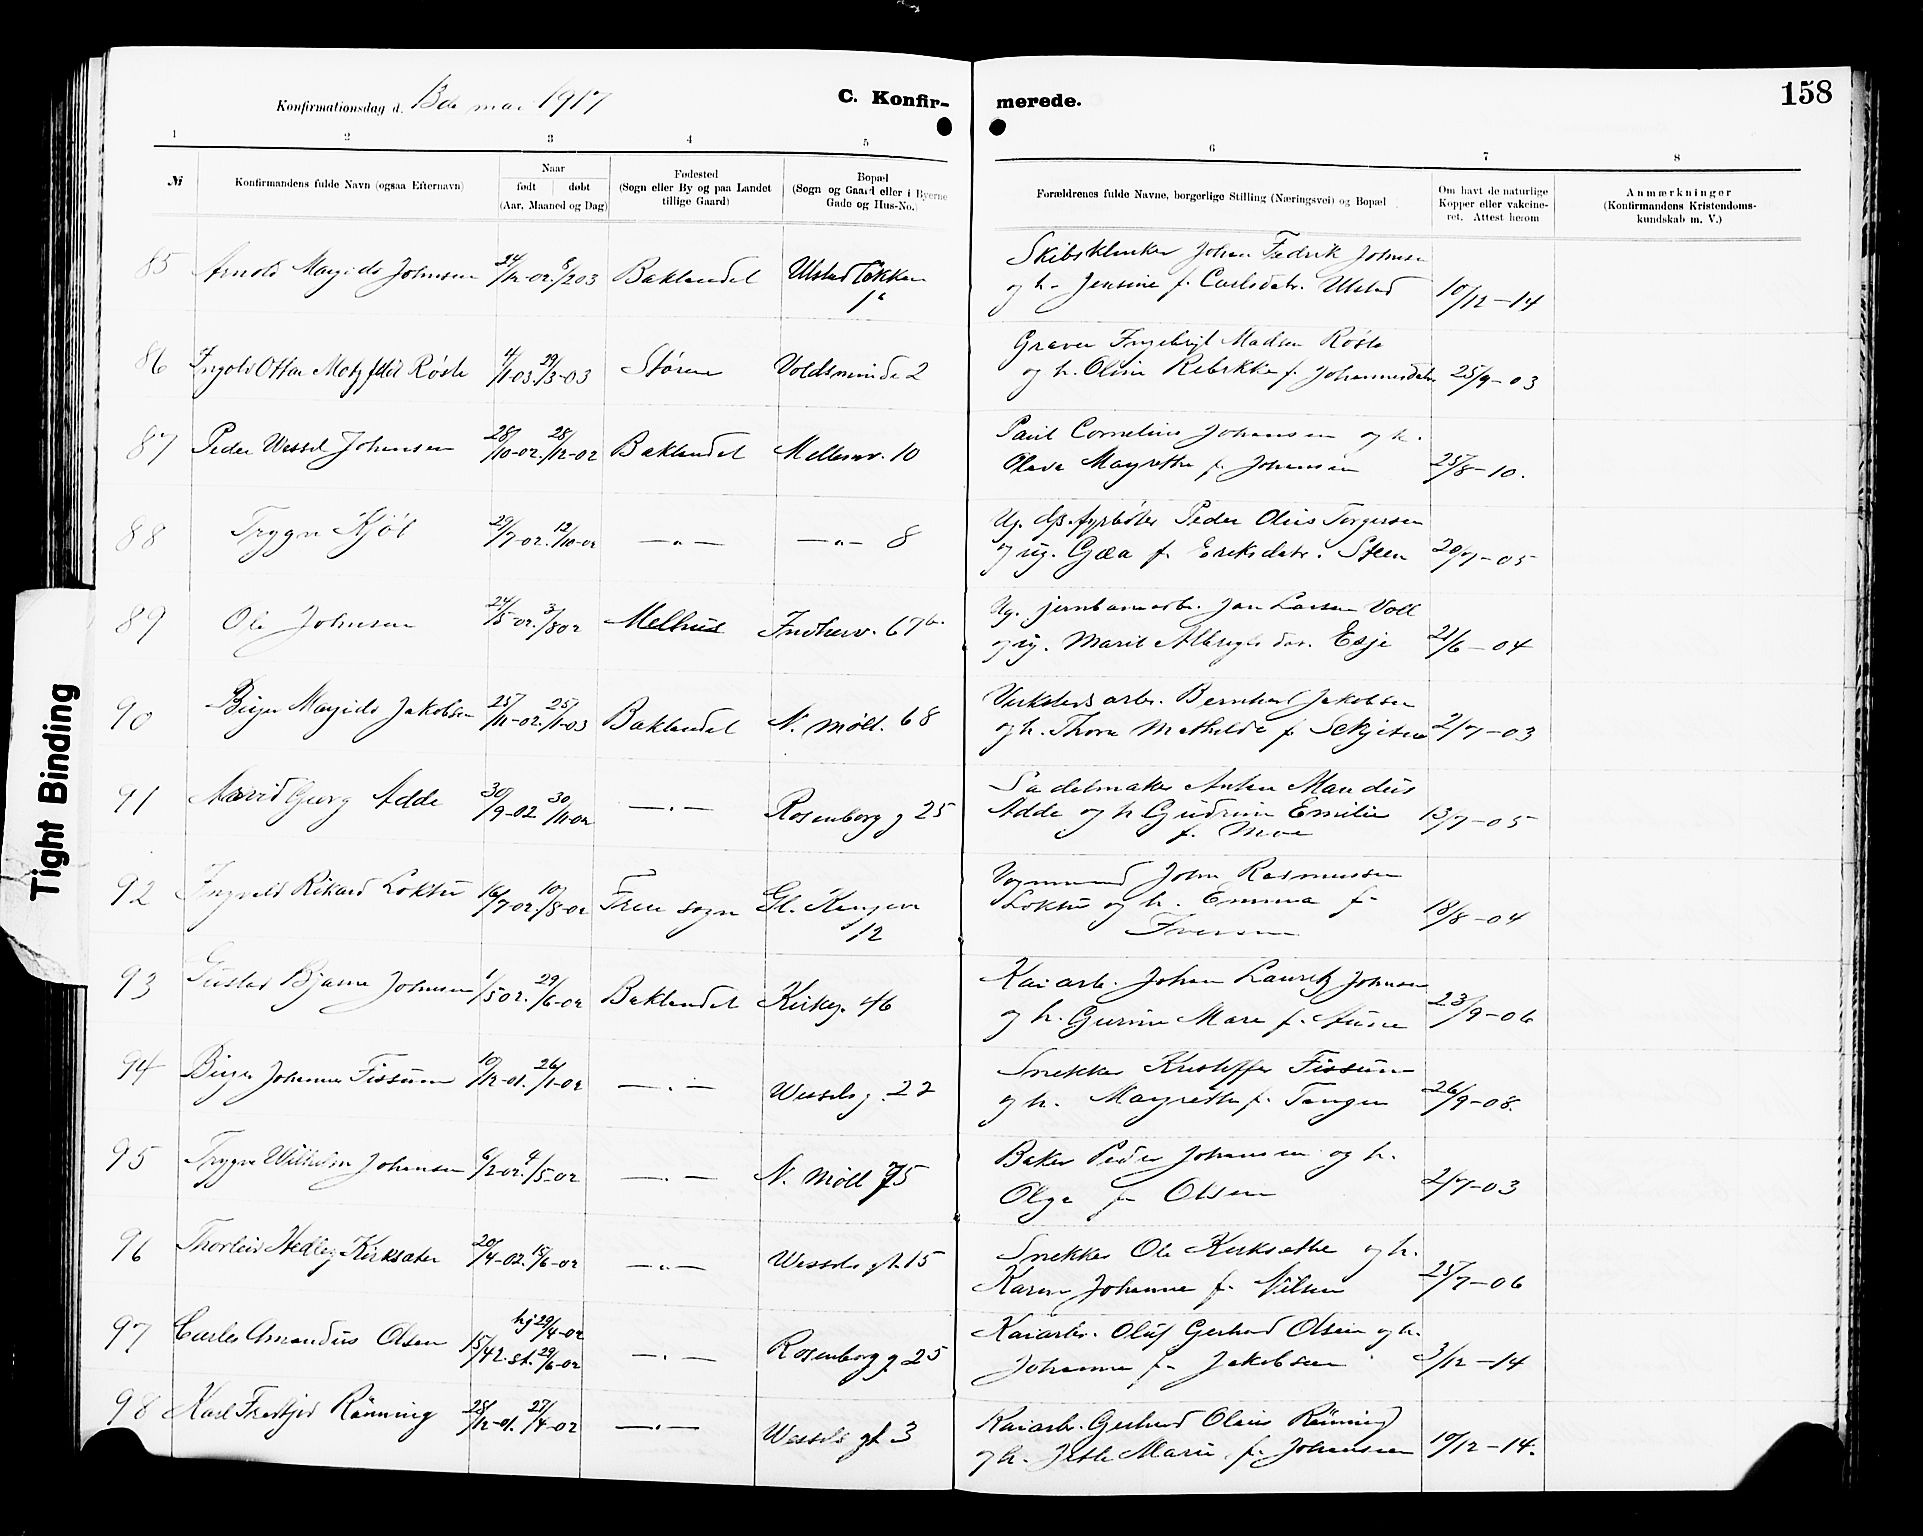 158
Konfirmationsdag d. 13de mai 1917
C. Konfir- merede.
1 2 3 4 5 6 7 8
№
Konfirmandens fulde Navn (ogsaa Efternavn)
Naar
født døbt
(Aar, Maaned og Dag)
Fødested
(Sogn eller By og paa Landet
tillige Gaard)
Bopæl
(Sogn og Gaard eller i Byerne
Gade og Hus-No.)
Forældrenes fulde Navne, borgerlige Stilling (Næringsvei) og Bopæl
Om havt de naturlige
Kopper eller vakcine-
ret. Attest herom
Anmærkninger
(Konfirmandens Kristendoms-
kundskab m. V.)
85 Arnold Johnsen 24/12-02. 8/2 03 Baklandet Ulstadløkken 1a
Johan Fedrik Johnsen
og h. Jensine f. Carlsdatr. Ulstad 10/12-14
86 Ingolv Ottar Motzfeldt Røste 4/1-03. 29/3-03 Støren Voldsminde 2
Graver Ingebrigt Madsen Røste
og h. Oline Rebekka f. Johannesdatr. 25/9-03
87 Peder Wessel Johansen 28/10-02. 28/12-02 Baklandet Mellemv. 10
Paul Cornelius Johansen og h.
Olava Margrethe f. Johansen 25/8-10.
88 Trygve Kjøl 29/7-02. 12/10-02 —„— —„— 8
Ug. dp.fyrbøter Peder Olus Torgersen
og ug. Gjæa f. Eriksdatr. Steen 20/7-05
89 Ole Johnsen 24/5-02. 3/8 02 Melhus Indherv. 67b.
Ug. jernbanearb. Jon Larsen Voll
og ug. Marit Esje 21/6-04
90 Birger Jakobsen 25/11-02. 25/1-03 Baklandet N. Møll. 68
Verkstedsarb. Bernhard Jakobsen
og h. Thora Mathilde f. 2/7-03
91 Arvid Georg Adde 30/9-02 30/11-02 —„— Rosenborg g 25
Sadelmaker Anton Mandius
Adde og h Gudrun Emilie
f. Moe 13/7-05
92 Ingvald Rikard Loktu 16/7-02. 10/8-02 Frei sogn Gl. Kongev 12
Vognmand John Rasmussen
Loktu og h. Emma f.
Iversen 18/8-04
93 Gustav Bjarne Johnsen 1/5 02. 29/6-02 Baklandet Kirkeg. 46
Kaiarb. Johan Lauritz Johnsen
og h. Gurine Mare f. 23/9-06
94 Birger Johannes Fissum 10/12-01. 26/1-02 —„— Wessels g. 22
Snekker Kristoffer Fissum
og h. Margrethe f. Tangen 26/9-08.
95 Trygve Wilhelm Johansen 6/2-02. 4/5-02 —„— N. Møll 75
Baker Peder Johansen og h.
Olga f. Olsen 2/7-03
96 Thorleiv Hedley Kirksæter 20/4-02. 15/6-02 —„— Wessels gt. 15
Snekker Ole Kirksæther og h.
Karen Johanne f. Nilsen 25/7-06
97 Carles Amandus Olsen 15/4 2. hj 29/4-02 st. 29/6-02 —„— Rosenborg g 25
Kaiarb. Oluf Gerhard Olsen og h.
Johanne f. Jakobsen 3/12-14
98 Karl Fredtjof Rønning 28/12-01. 27/4-02 —„— Wessels gt 3
Kaiarb. Gerhard Olaus Rønning
og h. Jette Marie f. Johansen 10/12-14.
Tight Binding